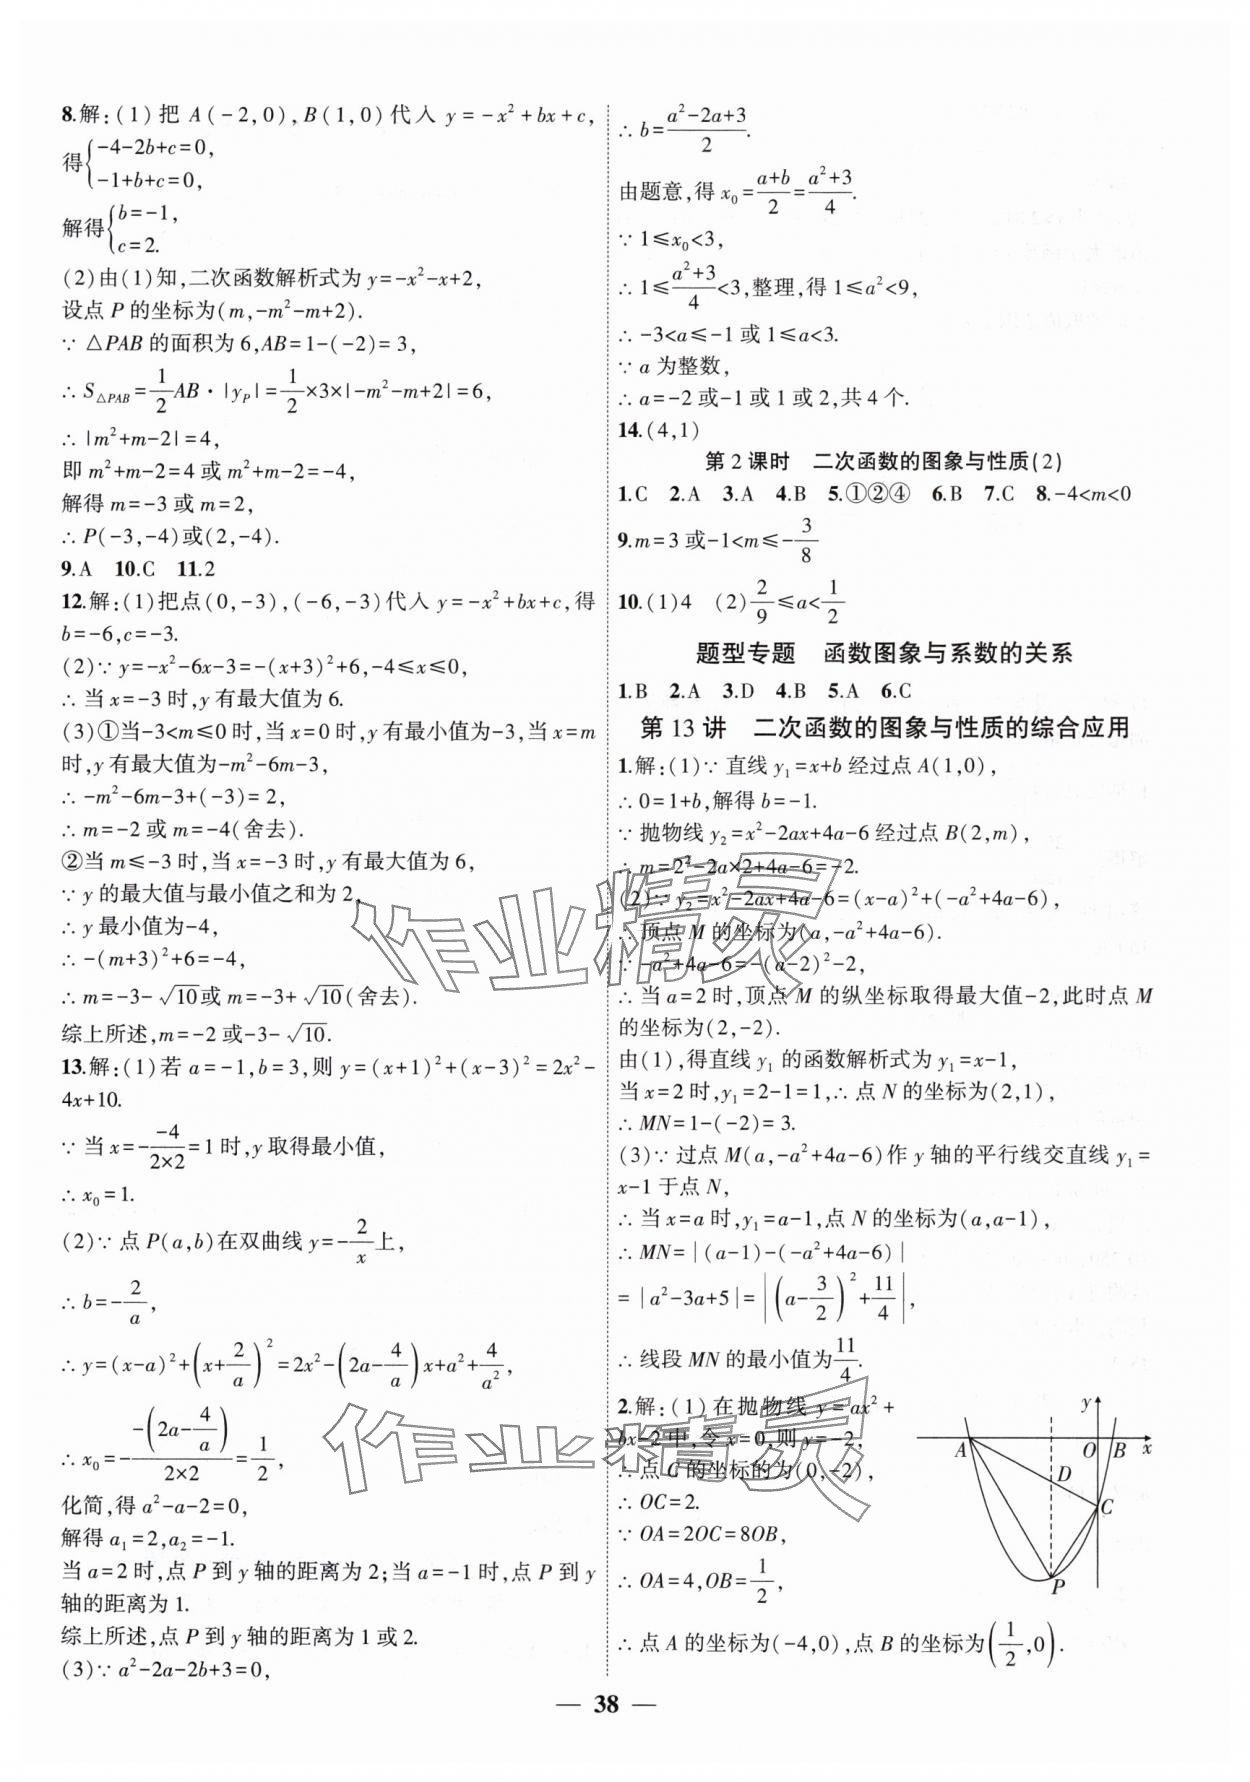 8.解:(1)把 A(-2,0),B(1,0)代入 y=-x²+bx+c,
得{-4-2b+c=0,
-1+b+c=0,
解得{b=-1,
c=2.
(2)由(1)知,二次函数解析式为 y=-x²-x+2,
设点 P 的坐标为(m,-m²-m+2).
∵ △PAB 的面积为 6,AB=1-(-2)=3,
∴ S△PAB=1/2AB·|yP|=1/2×3×|-m²-m+2|=6,
∴ |m²+m-2|=4,
即 m²+m-2=4 或 m²+m-2=-4,
解得 m=-3 或 m=2,
∴ P(-3,-4)或(2,-4).
9.A 10.C 11.2
12.解:(1)把点(0,-3),(-6,-3)代入 y=-x²+bx+c,得
b=-6,c=-3.
(2)∵ y=-x²-6x-3=-(x+3)²+6,-4≤x≤0,
∴ 当 x=-3 时,y 有最大值为 6.
(3)①当-3<m≤0 时,当 x=0 时,y 有最小值为-3,当 x=m
时,y 有最大值为-m²-6m-3,
∴ -m²-6m-3+(-3)=2,
∴ m=-2 或 m=-4(舍去).
②当 m≤-3 时,当 x=-3 时,y 有最大值为 6,
∵ y 的最大值与最小值之和为 2,
∴ y 最小值为-4,
∴ -(m+3)²+6=-4,
∴ m=-3-√10或 m=-3+√10(舍去).
综上所述,m=-2 或-3-√10.
13.解:(1)若 a=-1,b=3,则 y=(x+1)²+(x-3)²=2x²-
4x+10.
∵ 当 x=-(-4)/(2×2)=1 时,y 取得最小值,
∴ x₀=1.
(2)∵ 点 P(a,b)在双曲线 y=-2/x上,
∴ b=-2/a,
∴ y=(x-a)²+(x+2/a)²=2x²-(2a-4/a)x+a²+4/a²,
∴ x₀=-(-(2a-4/a))/(2×2)=1/2,
化简,得 a²-a-2=0,
解得 a₁=2,a₂=-1.
当 a=2 时,点 P 到 y 轴的距离为 2;当 a=-1 时,点 P 到 y
轴的距离为 1.
综上所述,点 P 到 y 轴的距离为 1 或 2.
(3)∵ a²-2a-2b+3=0,
∴ b=(a²-2a+3)/2.
由题意,得 x₀=(a+b)/2=(a²+3)/4.
∵ 1≤x₀<3,
∴ 1≤(a²+3)/4<3,整理,得 1≤a²<9,
∴ -3<a≤-1 或 1≤a<3.
∵ a 为整数,
∴ a=-2 或-1 或 1 或 2,共 4 个.
14.(4,1)
第 2 课时 二次函数的图象与性质(2)
1.C 2.A 3.A 4.B 5.①②④ 6.B 7.C 8.-4<m<0
9.m=3 或-1<m≤-3/8
10.(1)4 (2)2/9≤a<1/2
题型专题 函数图象与系数的关系
1.B 2.A 3.D 4.B 5.A 6.C
第 13 讲 二次函数的图象与性质的综合应用
1.解:(1)∵ 直线 y₁=x+b 经过点 A(1,0),
∴ 0=1+b,解得 b=-1.
∵ 抛物线 y₂=x²-2ax+4a-6 经过点 B(2,m),
∴ m=2²-2a×2+4a-6=-2.
(2)∵ y₂=x²-2ax+4a-6=(x-a)²+(-a²+4a-6),
∴ 顶点 M 的坐标为(a,-a²+4a-6).
∵ -a²+4a-6=-(a-2)²-2,
∴ 当 a=2 时,顶点 M 的纵坐标取得最大值-2,此时点 M
的坐标为(2,-2).
由(1),得直线 y₁ 的函数解析式为 y₁=x-1,
当 x=2 时,y₁=2-1=1,∴ 点 N 的坐标为(2,1),
∴ MN=1-(-2)=3.
(3)∵ 过点 M(a,-a²+4a-6)作 y 轴的平行线交直线 y₁=
x-1 于点 N,
∴ 当 x=a 时,y₁=a-1,点 N 的坐标为(a,a-1),
∴ MN=|(a-1)-(-a²+4a-6)|
=|a²-3a+5|=|(a-3/2)²+11/4|,
∴ 线段 MN 的最小值为11/4.
2.解:(1)在抛物线 y=ax²+
bx-2 中,令 x=0,则 y=-2,
∴ 点 C 的坐标的为(0,-2),
∴ OC=2.
∵ OA=2OC=8OB,
∴ OA=4,OB=1/2,
∴ 点 A 的坐标为(-4,0),点 B 的坐标为(1/2,0).
y
A O B x
D
C
P
作业精灵
作业精灵
— 38 —